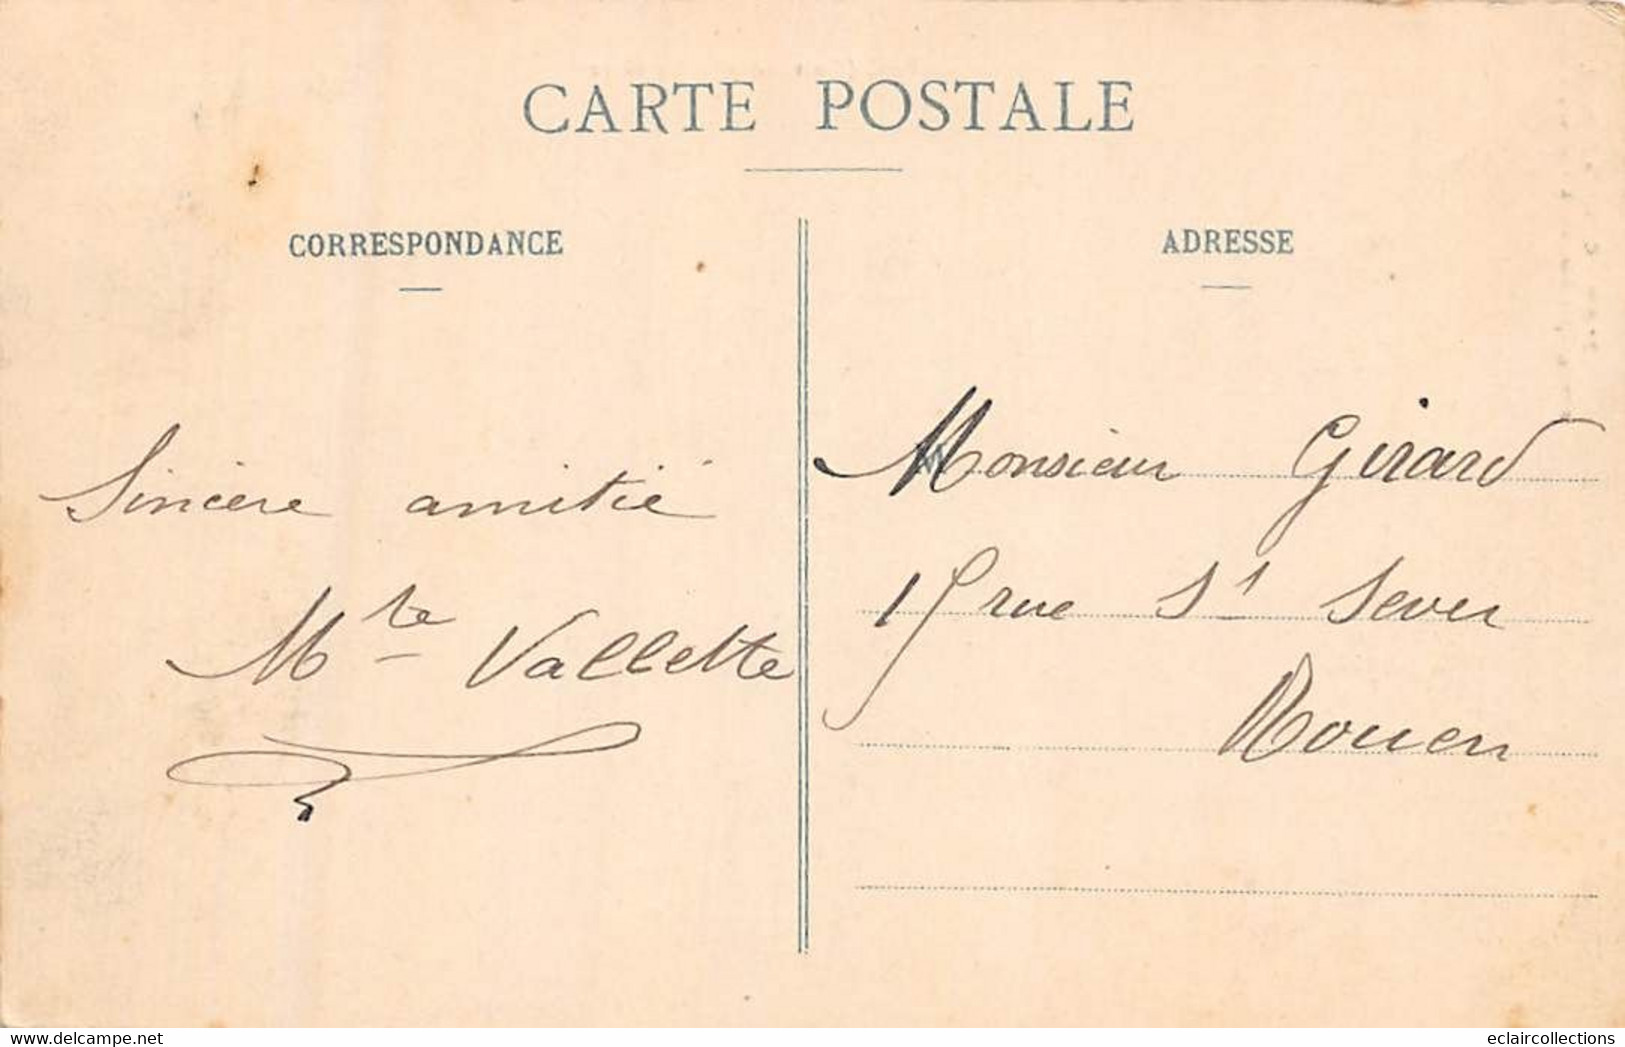 CARTE POSTALE
CORRESPONDANCE
Sincère amitié
Mlle Vallette
ADRESSE
Monsieur Girard
15 rue St Sever
Rouen
www.delcampe.net
eclaircollections